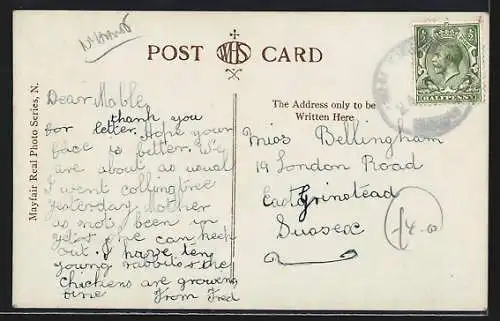 POST WHS CARD
HALFPENNY
Mayfair Real Photo Series, N.
The Address only to be
Written Here
Dear Mable,
thank you
for letter. Hope your
face is better. We
are about as usual
I went collingtree
yesterday Mother
as not been in
yet she can
out. I have ten
young rabbits & the
chickens are growing
fine From Fred
Miss Bellingham
19 London Road
East Grinstead
Sussex
£4-0